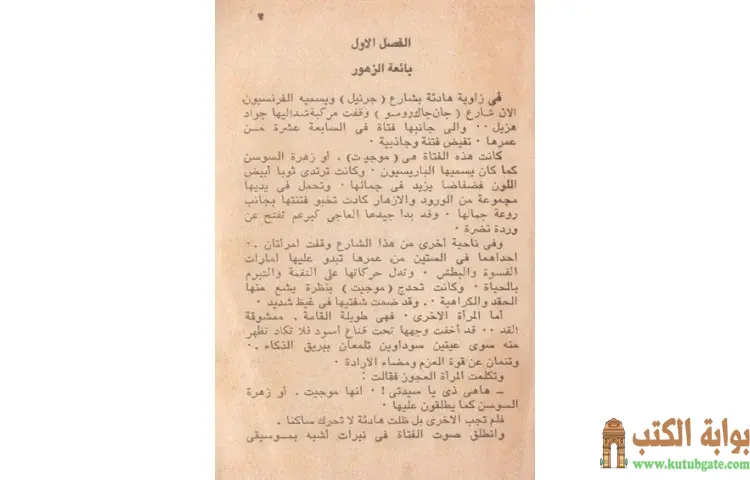 الفصل الاول
بائعة الزهور
فى زاوية هادئة بشارع ( جرنيل ) ويسميه الفرنسيون
الان شارع ( جان جاك روسو ) وقفت مركبة شد اليها جواد
هزيل ٠٠ والى جانبها فتاة فى السابعة عشرة من
عمرها ٠ تفيض فتنة وجاذبية ٠
كانت هذه الفتاة هى ( موجيت ) ٠ أو زهرة السوسن
كما كان يسميها الباريسيون ٠ وكانت ترتدى ثوبا ابيض
اللون فضفاضا يزيد فى جمالها ٠ وتحمل فى يديها
مجموعة من الورود والازهار كادت تخبو فتنتها بجانب
روعة جمالها ٠ وقد بدا جيدها العاجى كبرعم تفتح عن
وردة نضرة ٠
وفى ناحية أخرى من هذا الشارع وقفت امرأتان ٠
احداهما فى الستين من عمرها تبدو عليها امارات
القسوة والبطش ٠ وتدل حركاتها على النقمة والتبرم
بالحياة ٠ وكانت تحدج ( موجيت ) بنظرة يشع منها
الحقد والكراهية ٠ ٠ وقد ضمت شفتيها فى غيظ شديد ٠
أما المرأة الاخرى ٠ فهى طويلة القامة ٠ ممشوقة
القد ٠٠ قد أخفت وجهها تحت قناع أسود فلا تكاد تظهر
منه سوى عينين سوداوين تلمعان ببريق الذكاء ٠٠
وتنمان عن قوة العزم ومضاء الارادة ٠
وتكلمت المرأة العجوز فقالت :
ــ هاهى ذى يا سيدتى ! ٠ انها موجيت ٠ أو زهرة
السوسن كما يطلقون عليها ٠
فلم تجب الاخرى بل ظلت هادئة لا تحرك ساكنا ٠
وانطلق صوت الفتاة فى نبرات أشبه بموسيقى
بوابة الكتب
www.kutubgate.com